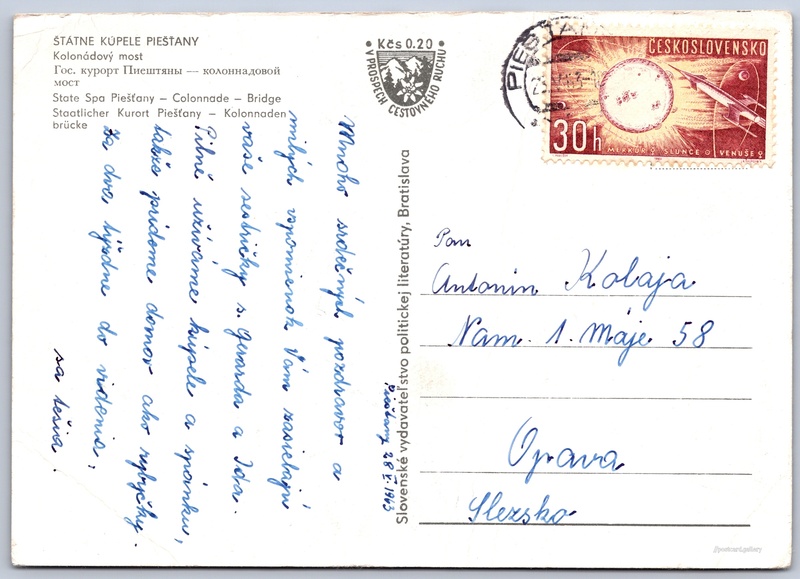 ŠTÁTNE KÚPELE PIEŠŤANY
Kolonádový most
Гос. курорт Пиештяны — колоннадовой
мост
State Spa Piešťany – Colonnade – Bridge
Staatlicher Kurort Piešťany – Kolonnaden
brücke
Kčs 0.20
V PROSPECH CESTOVNÉHO RUCHU
PIEŠŤANY
ČESKOSLOVENSKO
30h
MERKUR SLUNCE VENUŠE
Mnoho srdečných pozdravov a
milých vzpomienok Vám zasielajú
vaše sestričky s. Gerarda a Ida.
Pilne užívame kúpele a spánku,
takže prídeme domov ako rybičky.
Za dva týždne do videnia,
sa tešia.
Piešťany 28 V. 1963
Slovenské vydavateľstvo politickej literatúry, Bratislava
Pan
Antonín Kolaja
Nam. 1. Máje 58
Opava
Slezsko
jlpostcard.gallery